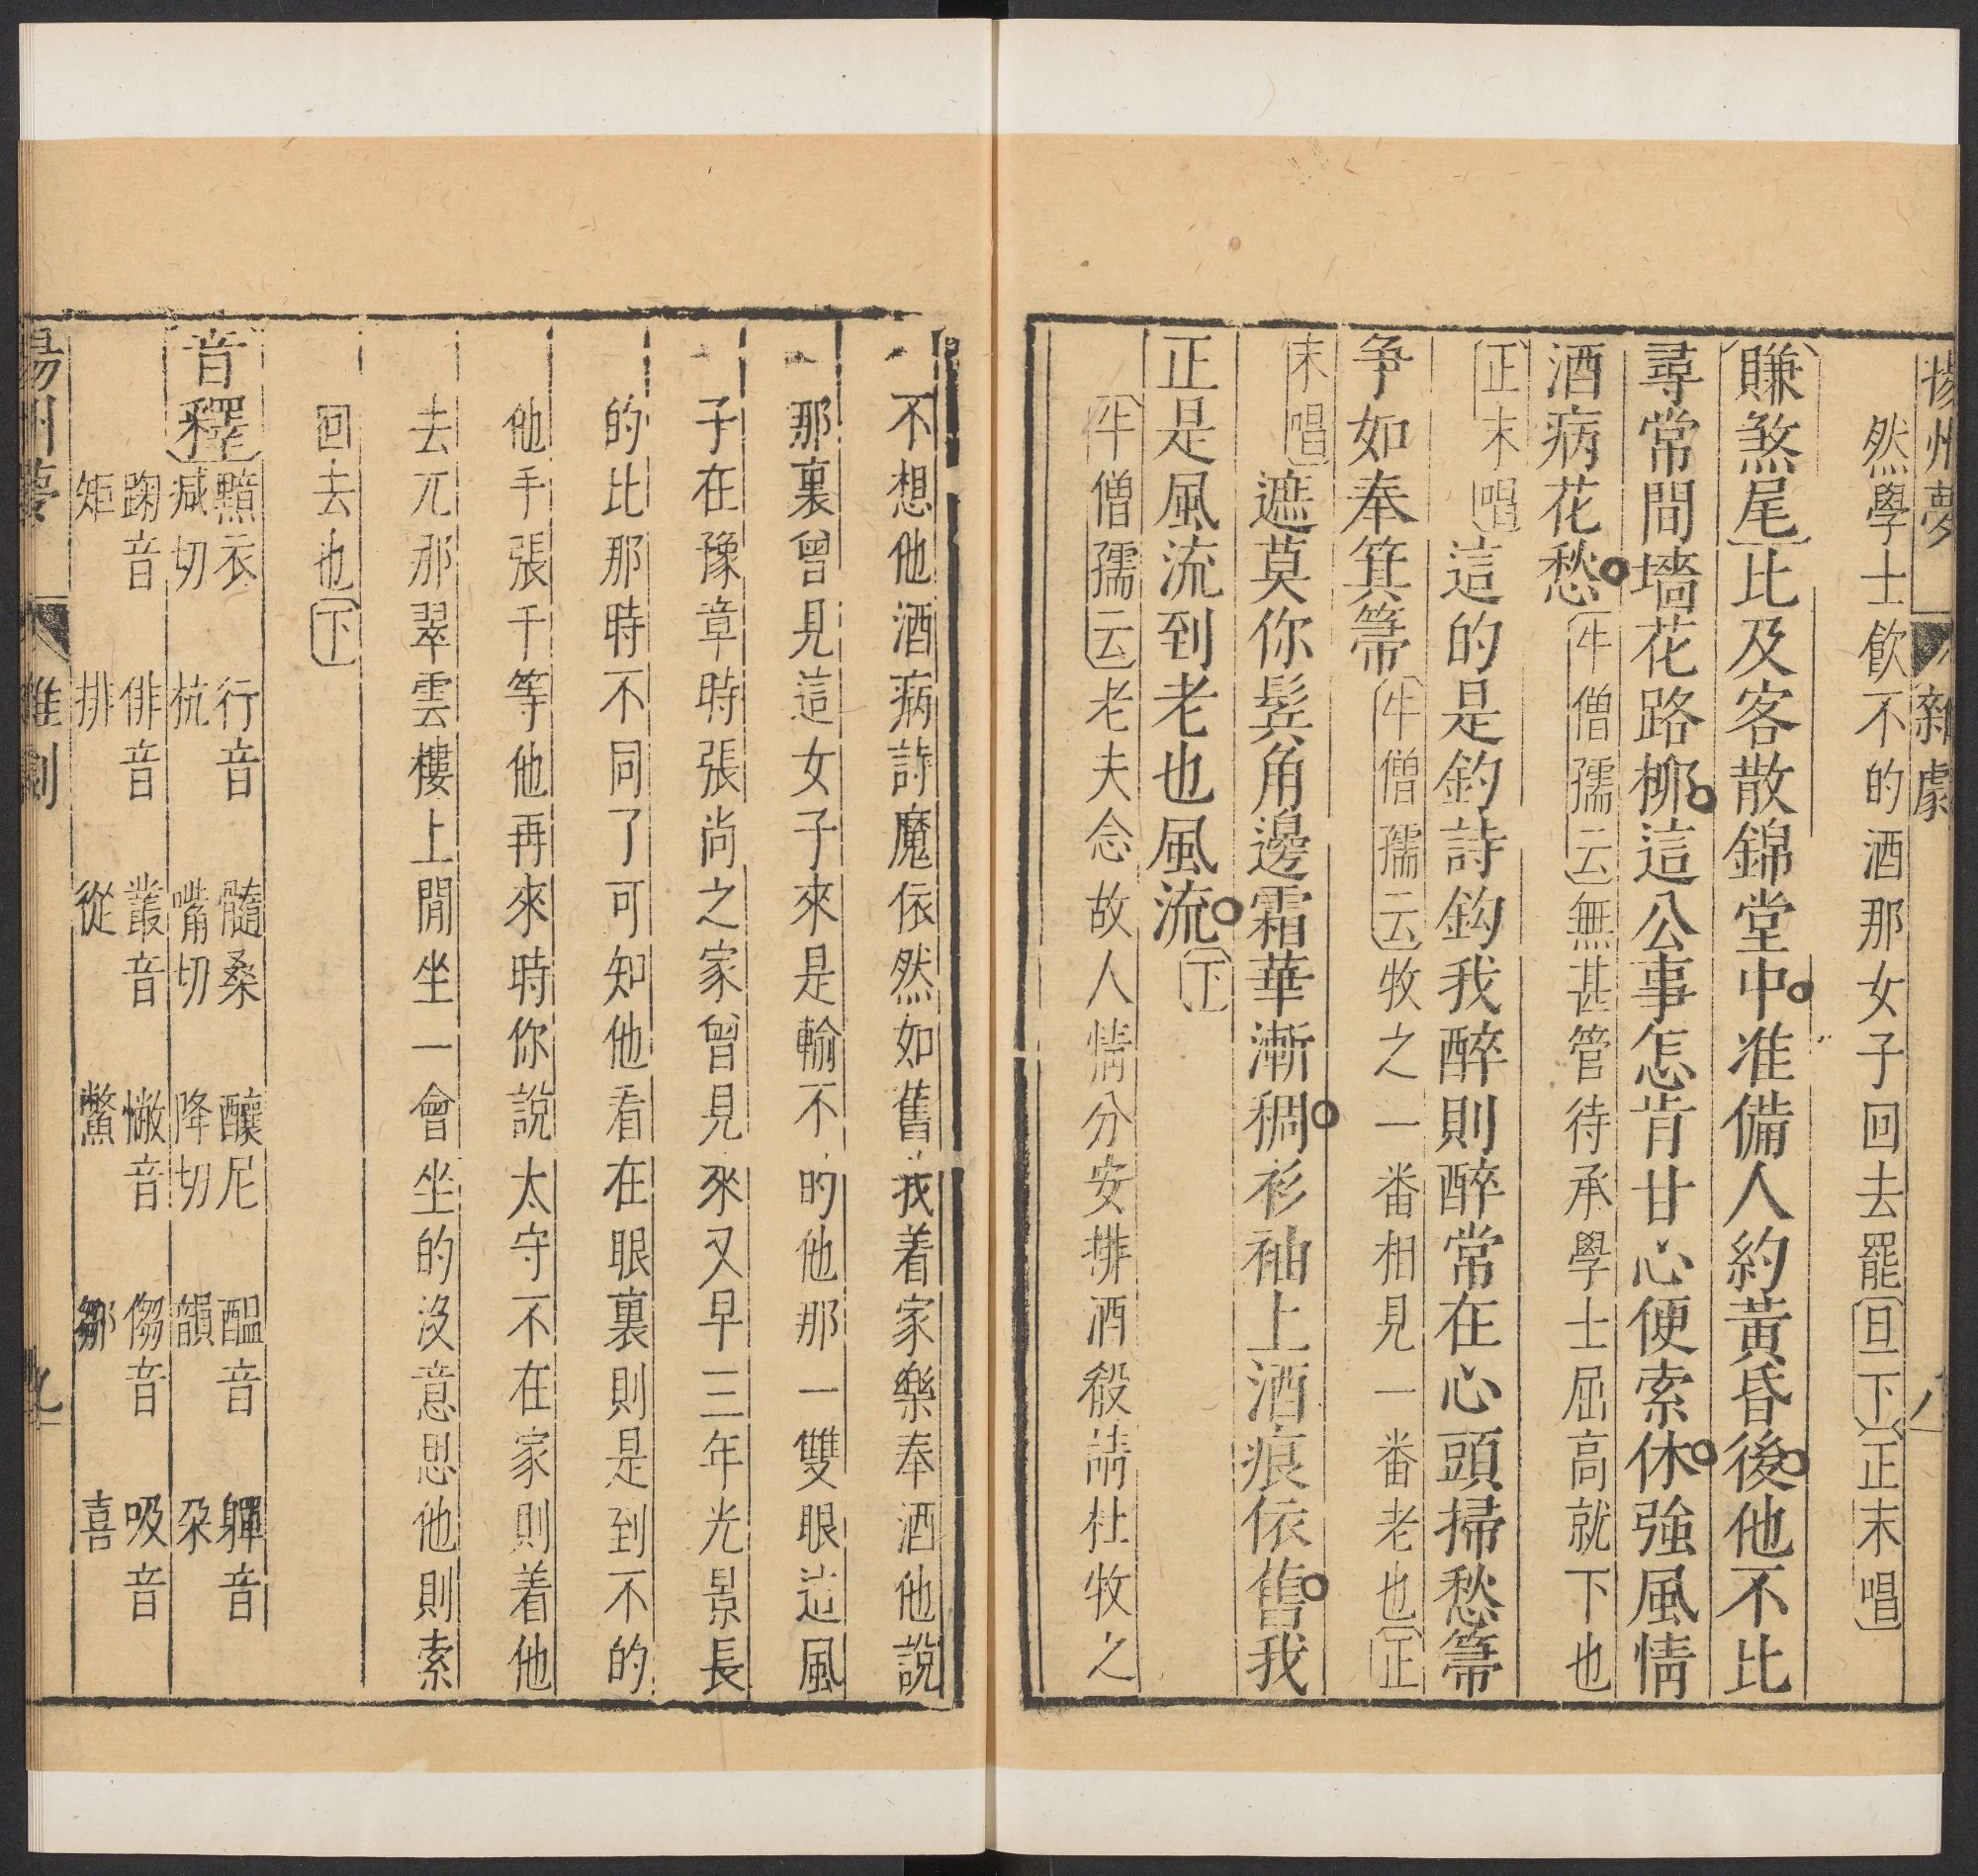 揚州夢 雜劇 八
然學士飲不的酒那女子回去罷旦下正末唱
賺煞尾比及客散錦堂中准備人約黃昏後他不比
尋常問墻花路柳這公事怎肯甘心便索休強風情
酒病花愁牛僧孺云無甚管待承學士屈高就下也
正末唱這的是釣詩鈎我醉則醉常在心頭掃愁箒
爭如奉箕箒牛僧孺云牧之一番相見一番老也正
末唱遮莫你鬂角邊霜華漸稠衫袖上酒痕依舊我
正是風流到老也風流下
牛僧孺云老夫念故人情分安排酒殽請杜牧之
不想他酒病詩魔依然如舊我着家樂奉酒他說
那裏曾見這女子來是輸不的他那一雙眼這風
子在豫章時張尚之家曾見來又早三年光景長
的比那時不同了可知他看在眼裏則是到不的
他手張千等他再來時你說太守不在家則着他
去兀那翠雲樓上閒坐一會坐的沒意思他則索
回去也下
音釋
黯衣減切 行音杭 髓桑嘴切 釀尼降切 醖音韻 軃音朶
踘音矩 俳音排 叢音從 憋音鱉 㑳音鄒 吸音喜
揚州夢 雜劇 九